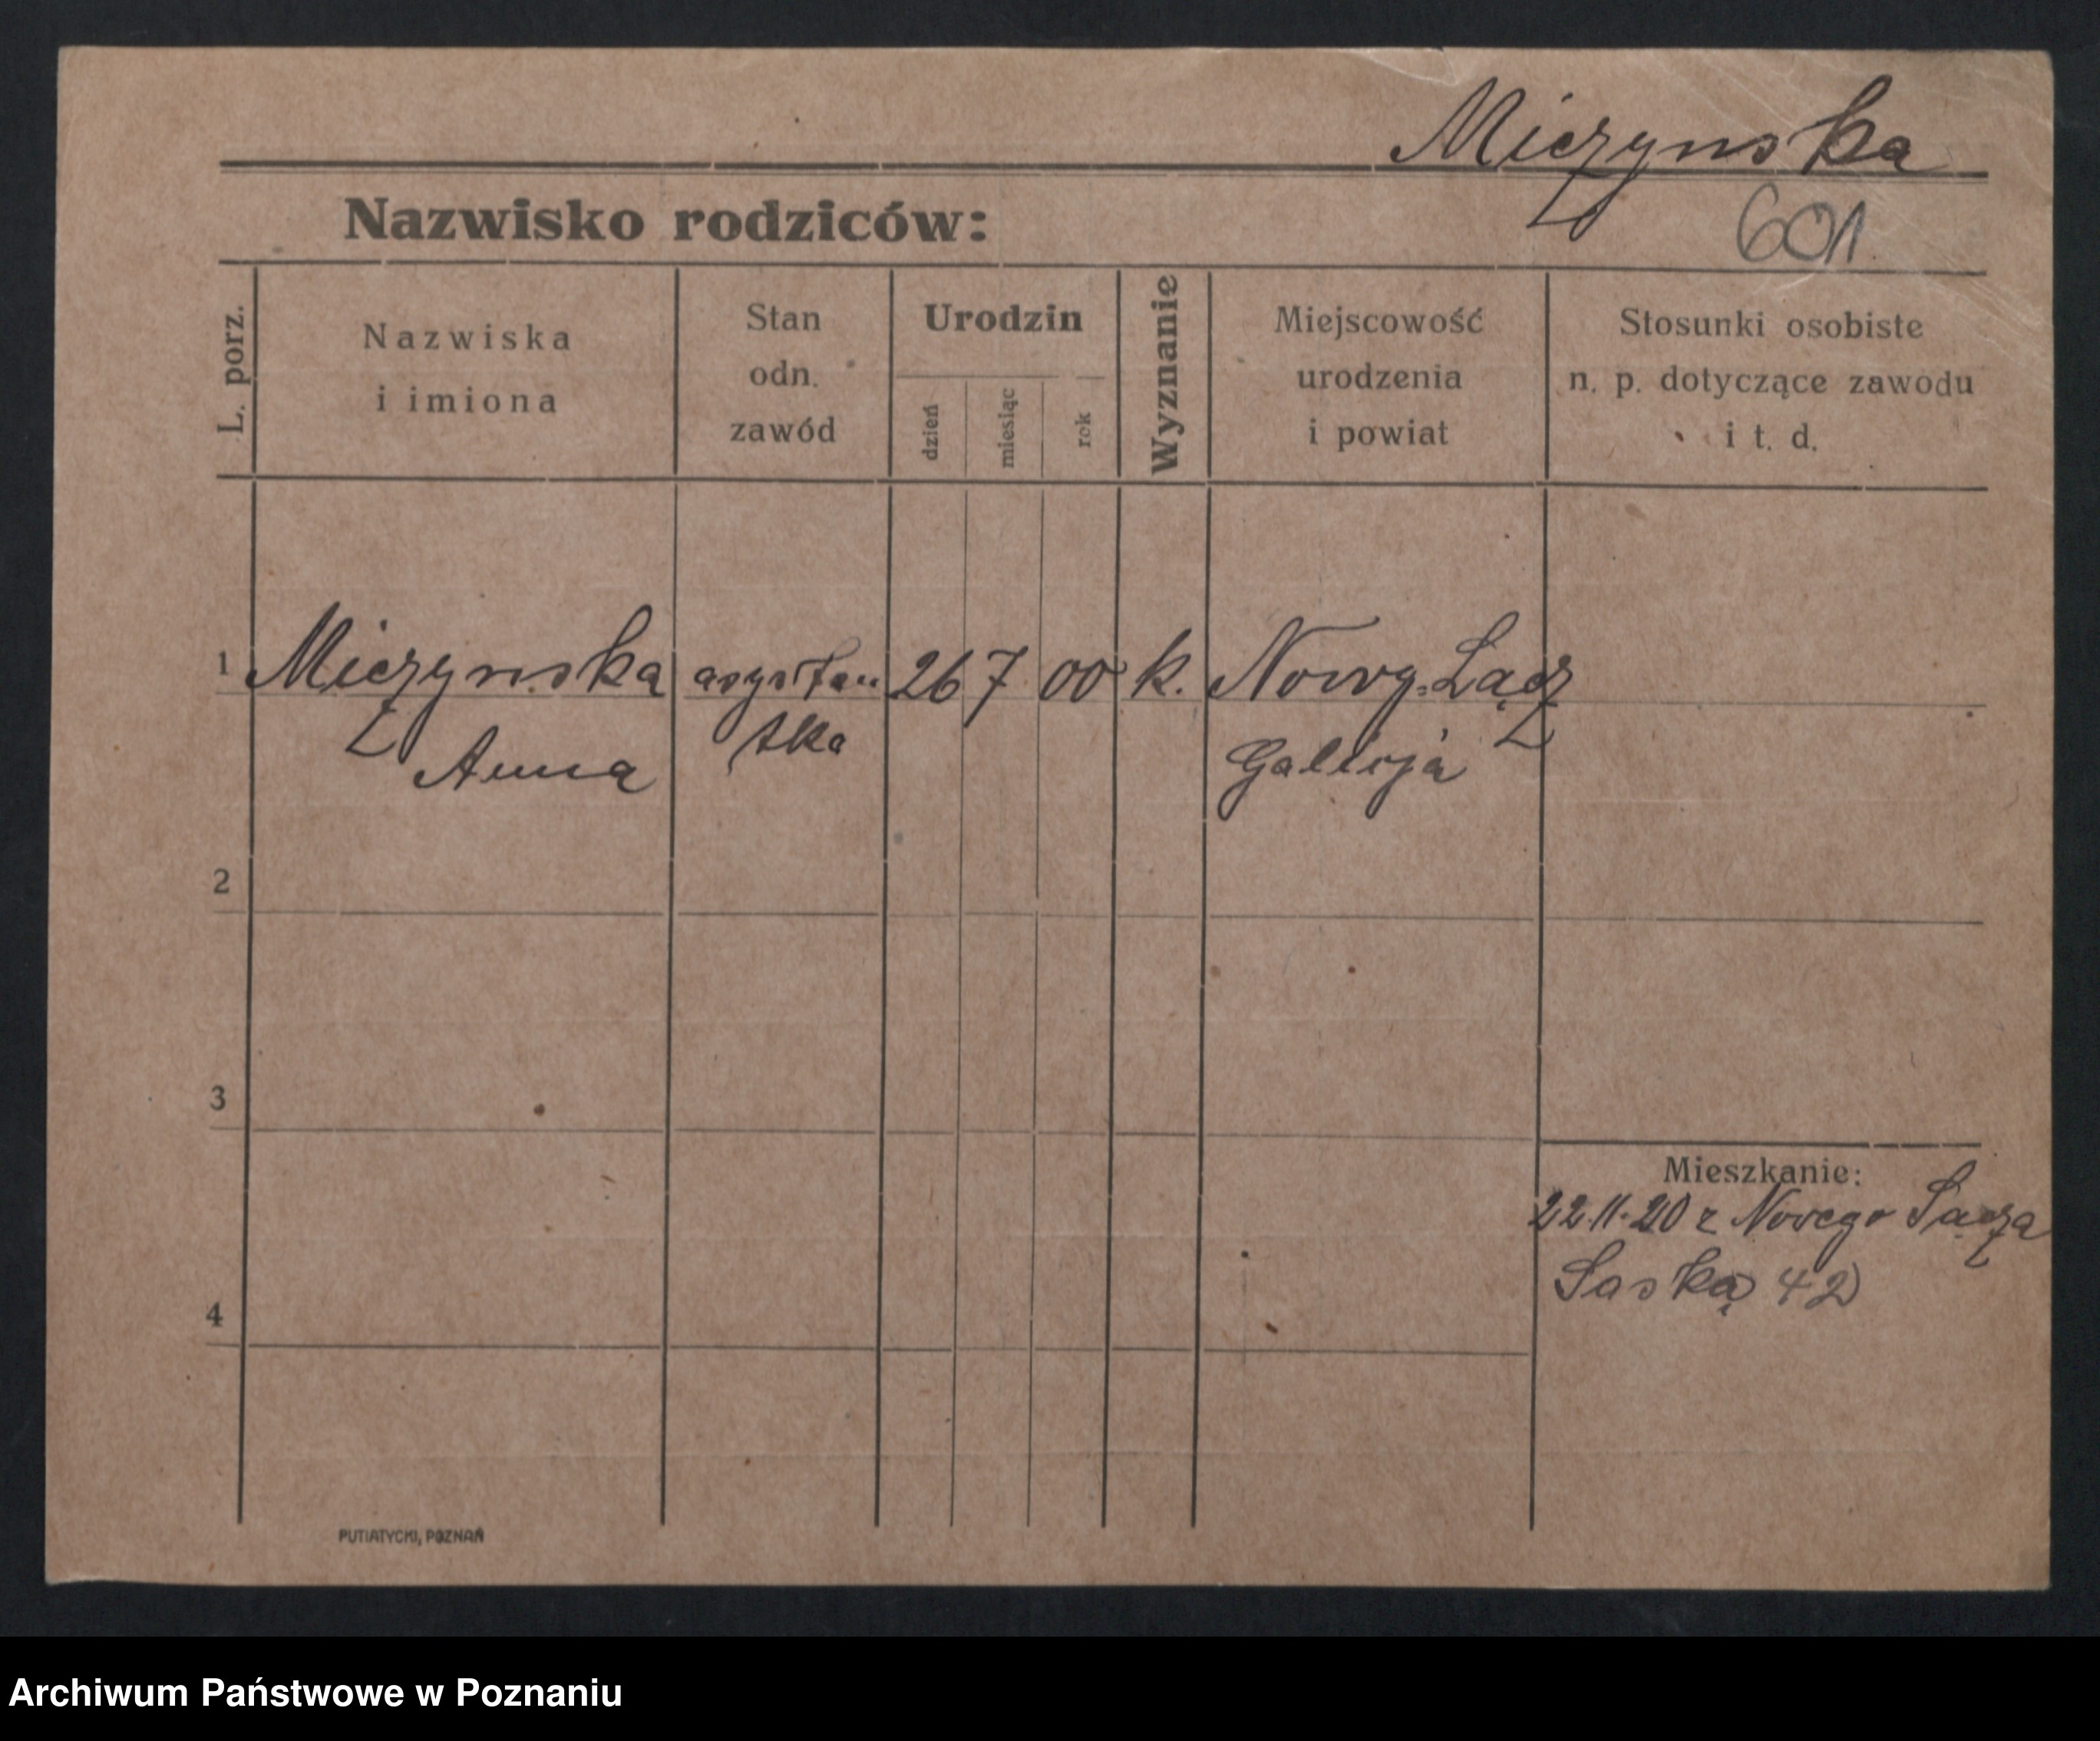 Miczynska
601
Nazwisko rodziców:
L. porz.
Nazwiska
i imiona
Stan
odn.
zawód
Urodzin
dzień
miesiąc
rok
Wyznanie
Miejscowość
urodzenia
i powiat
Stosunki osobiste
n. p. dotyczące zawodu
i t. d.
1 Miczynska asystan 26 7 00 k. Nowy-Sącz
Anna tka Galicja
2
3
4
Mieszkanie:
22.11.20 z Nowego Sącza
Saska 42
PUTIATYCKI, POZNAŃ
Archiwum Państwowe w Poznaniu